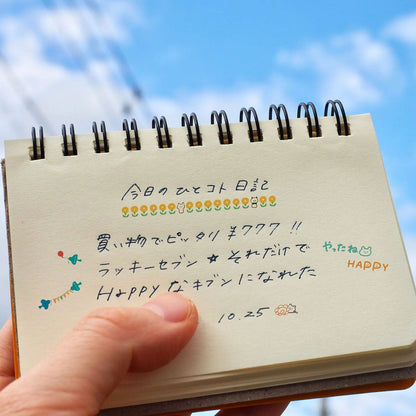 今日のひとコト日記
買い物でピッタリ ¥777 !!
ラッキーセブン★それだけで
HAPPYなキブンになれた
やったね
HAPPY
10.25